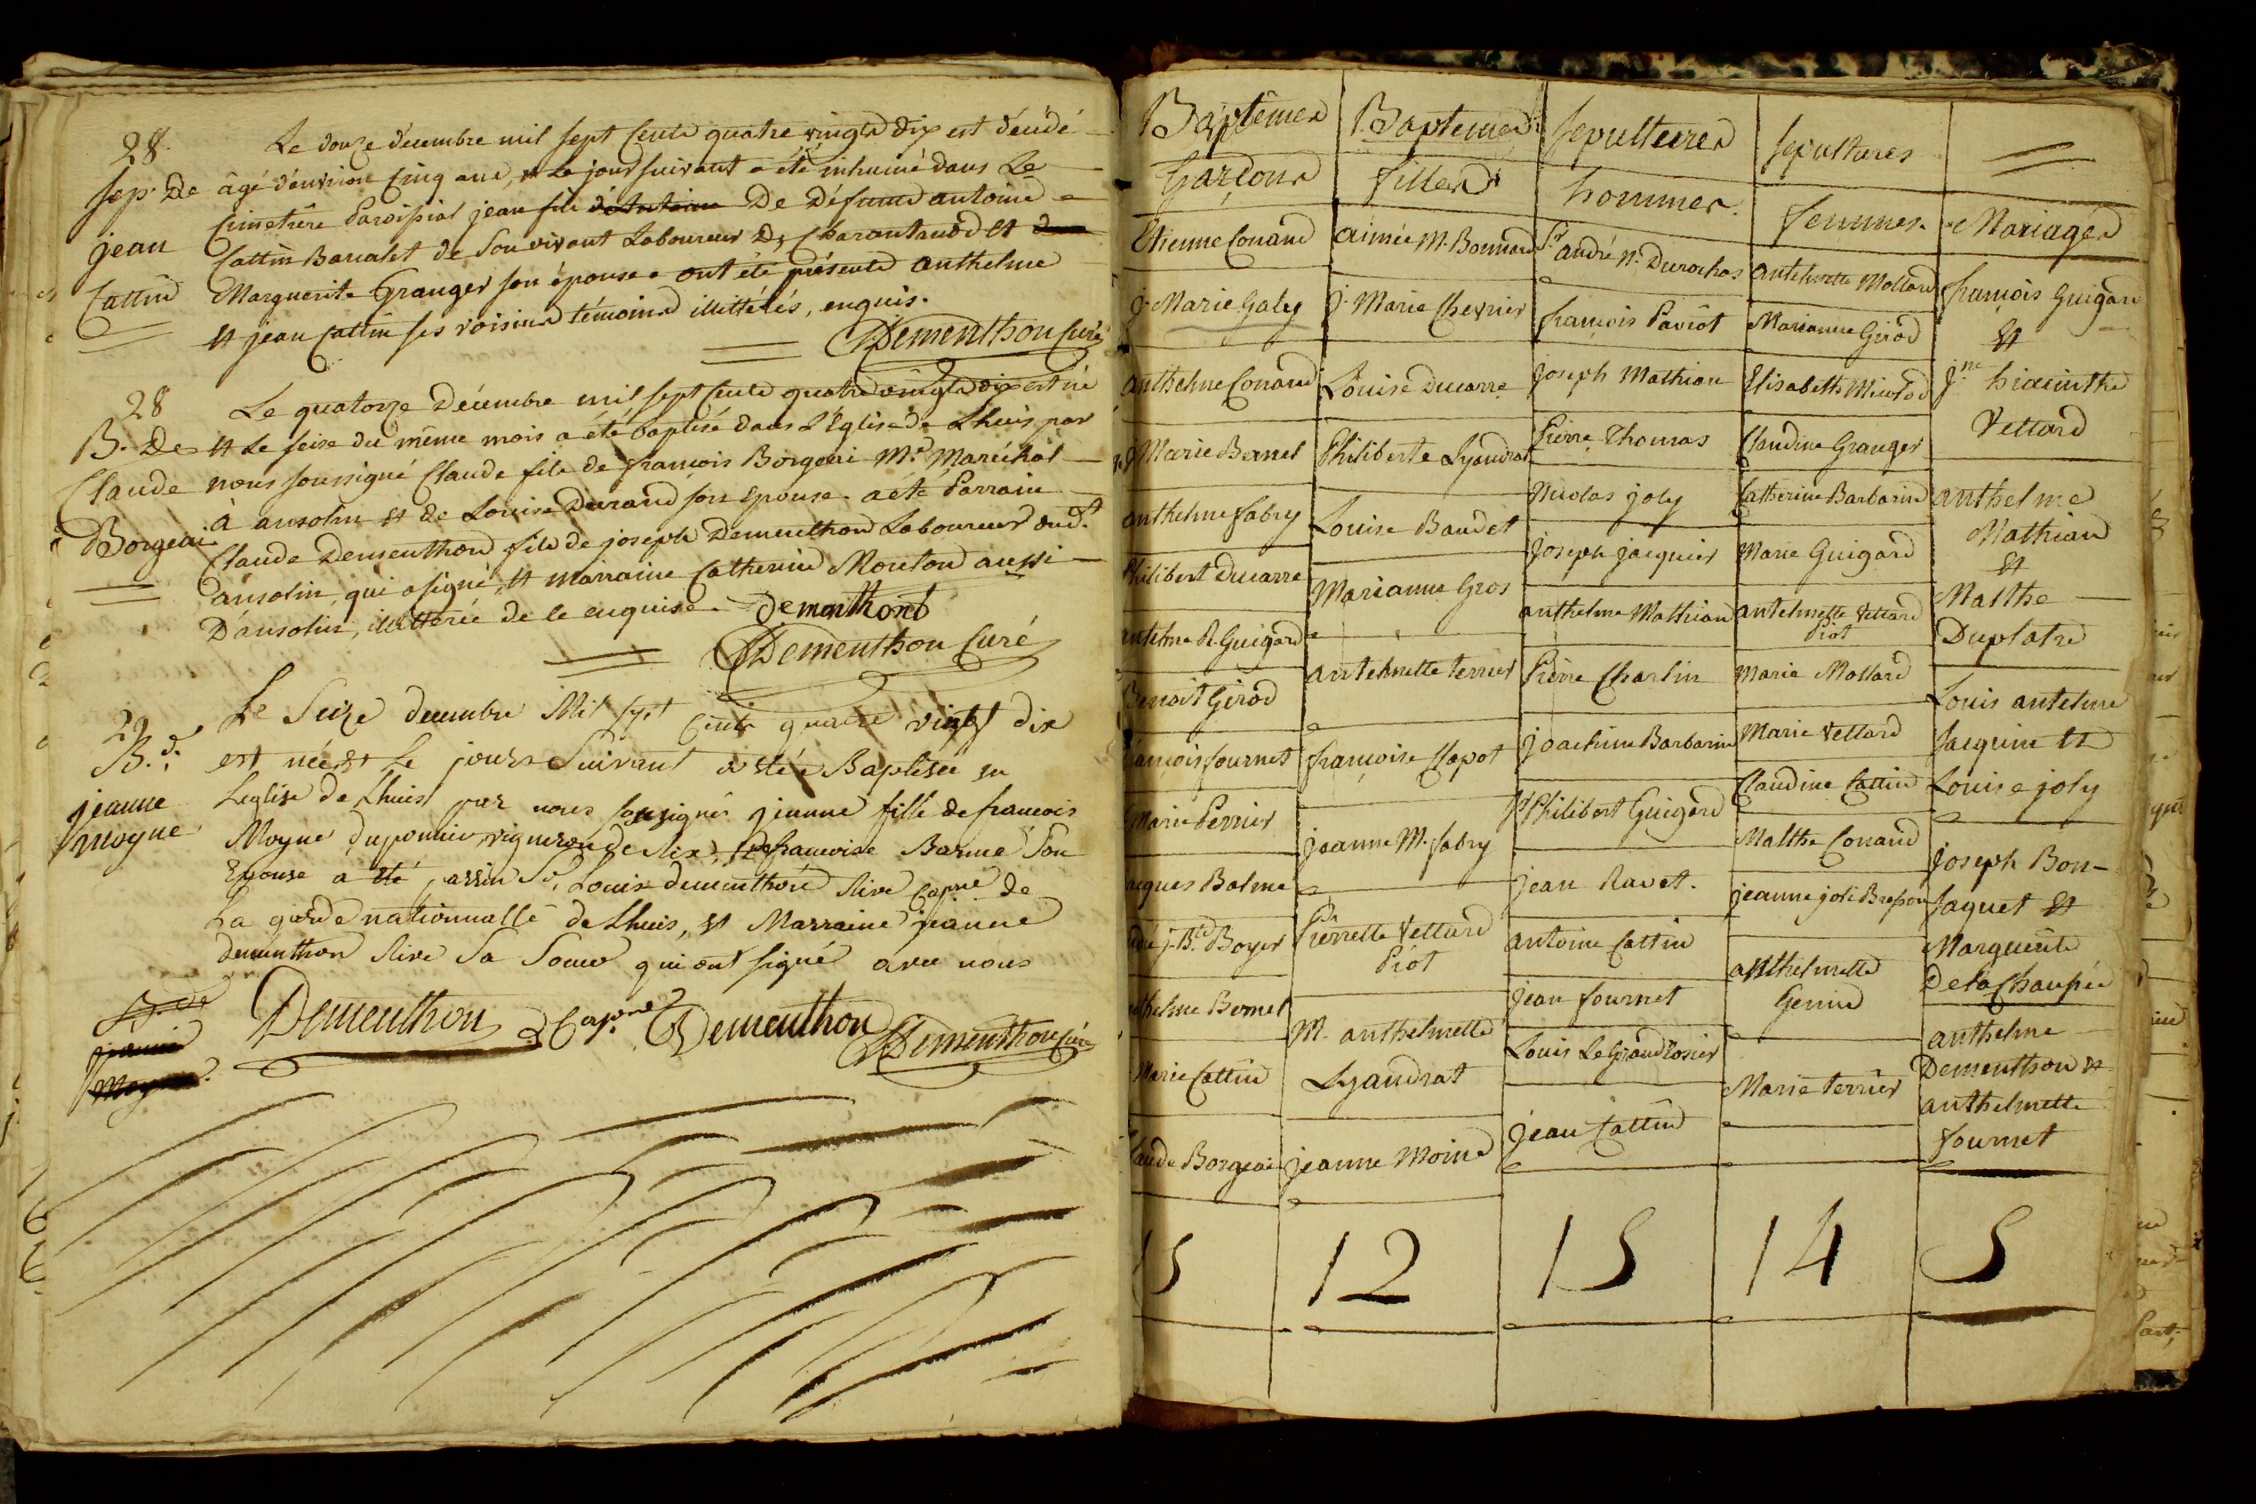 28.
sep. De
jean
Cattin
Le douze décembre mil sept cents quatre vingts dix est décédé
âgé d'environ cinq ans, et le jour suivant a été inhumé dans Le
Cimetière Paroissial jean fils De Défunt antoine
Cattin Barralet de son vivant Laboureur De Charantanod et
Marguerite Granger son épouse. ont été présents anthelme
et jean Cattin ses voisins témoins illittérés, enquis.
Dementhon Curé
28
B. De
Claude
Borgeai
Le quatorze Décembre mil sept cents quatre vingts dix est né
et Le seise du même mois a été baptisé dans l'Eglise de Lhuis par
nous soussigné Claude fils de françois Borgeai Md. Maréchal
à ansolin et de Louise Durand son Epouse. a été Parrain
Claude Dementhon fils de joseph Dementhon Laboureur dudt.
ansolin, qui a signé, et marraine Catherine Mouton aussi
D'ansolin, illitterée de ce enquise. demonthont
Dementhon Curé
29
B. d.
jeanne
moyne
Le Seize decembre Mil sept Cents quatre vingt dix
est née et Le jours Suivant a été Baptisée en
Leglise de Lhuis par nous soussignés jeanne fille de francois
Moyne dupommier vigneron de Rix, et francoise Barme Son
Epouse a été parrin Sr. Louis dementhon Rive Capne de
La garde nationnalle de Lhuis, et Marraine jeanne
dementhon Rive Sa Soeur qui ont signé avec nous
Dementhon Capne Dementhon
Dementhon Curé
Baptêmes
Garçons
Etienne Conand
j. Marie Galey
anthelme Conand
j. Marie Bernet
anthelme fabry
Philibert Ducarre
antelme R. Guigard
Benoit Girod
françois fournet
Marie Perrier
jacques Balme
j. Bte. Boyer
anthelme Bernet
Marie Cattin
Claude Borgeai
15
Baptemes
filles
aimée M. Bonnard
j. Marie Chevrier
Louise Ducarre
Philiberte Lyandrat
Louise Baudet
Marianne Gros
antelmette terrier
françoise Clapot
jeanne M. fabry
Pierrette Vettard
Piot
M. anthelmette
Lyandrat
jeanne Moine
12
sepultures
hommes.
Sr. andré N. Durochas
françois Paviot
joseph Mathian
Pierre Thomas
Nicolas joly
joseph jacquier
anthelme Mathian
Pierre Charlin
joachim Barbarin
Philibert Guigard
jean Ravet.
antoine Cattin
jean fournet
Louis Le Grand Rosier
jean Cattin
15
sepultures
femmes.
antelmette Mollard
Marianne Girod
Elisabeth Miulod
Claudine Granger
Catherine Barbarin
Marie Guigard
antelmette Vettard
Piot
Marie Mollard
Marie Vettard
Claudine Cattin
Malthe Conand
jeanne joli Bresson
anthelmette
Genin
Marie terrier
14
Mariages
françois Guigard
et
jne hiacinthe
Vettard
anthelme
Mathian
et
Malthe
Duplatre
Louis antelme
Jacquin et
Louise joly
joseph Bon-
Jaquet et
Marguerite
Dela Chaupée
anthelme
Dementhon et
anthelmette
fournet
5